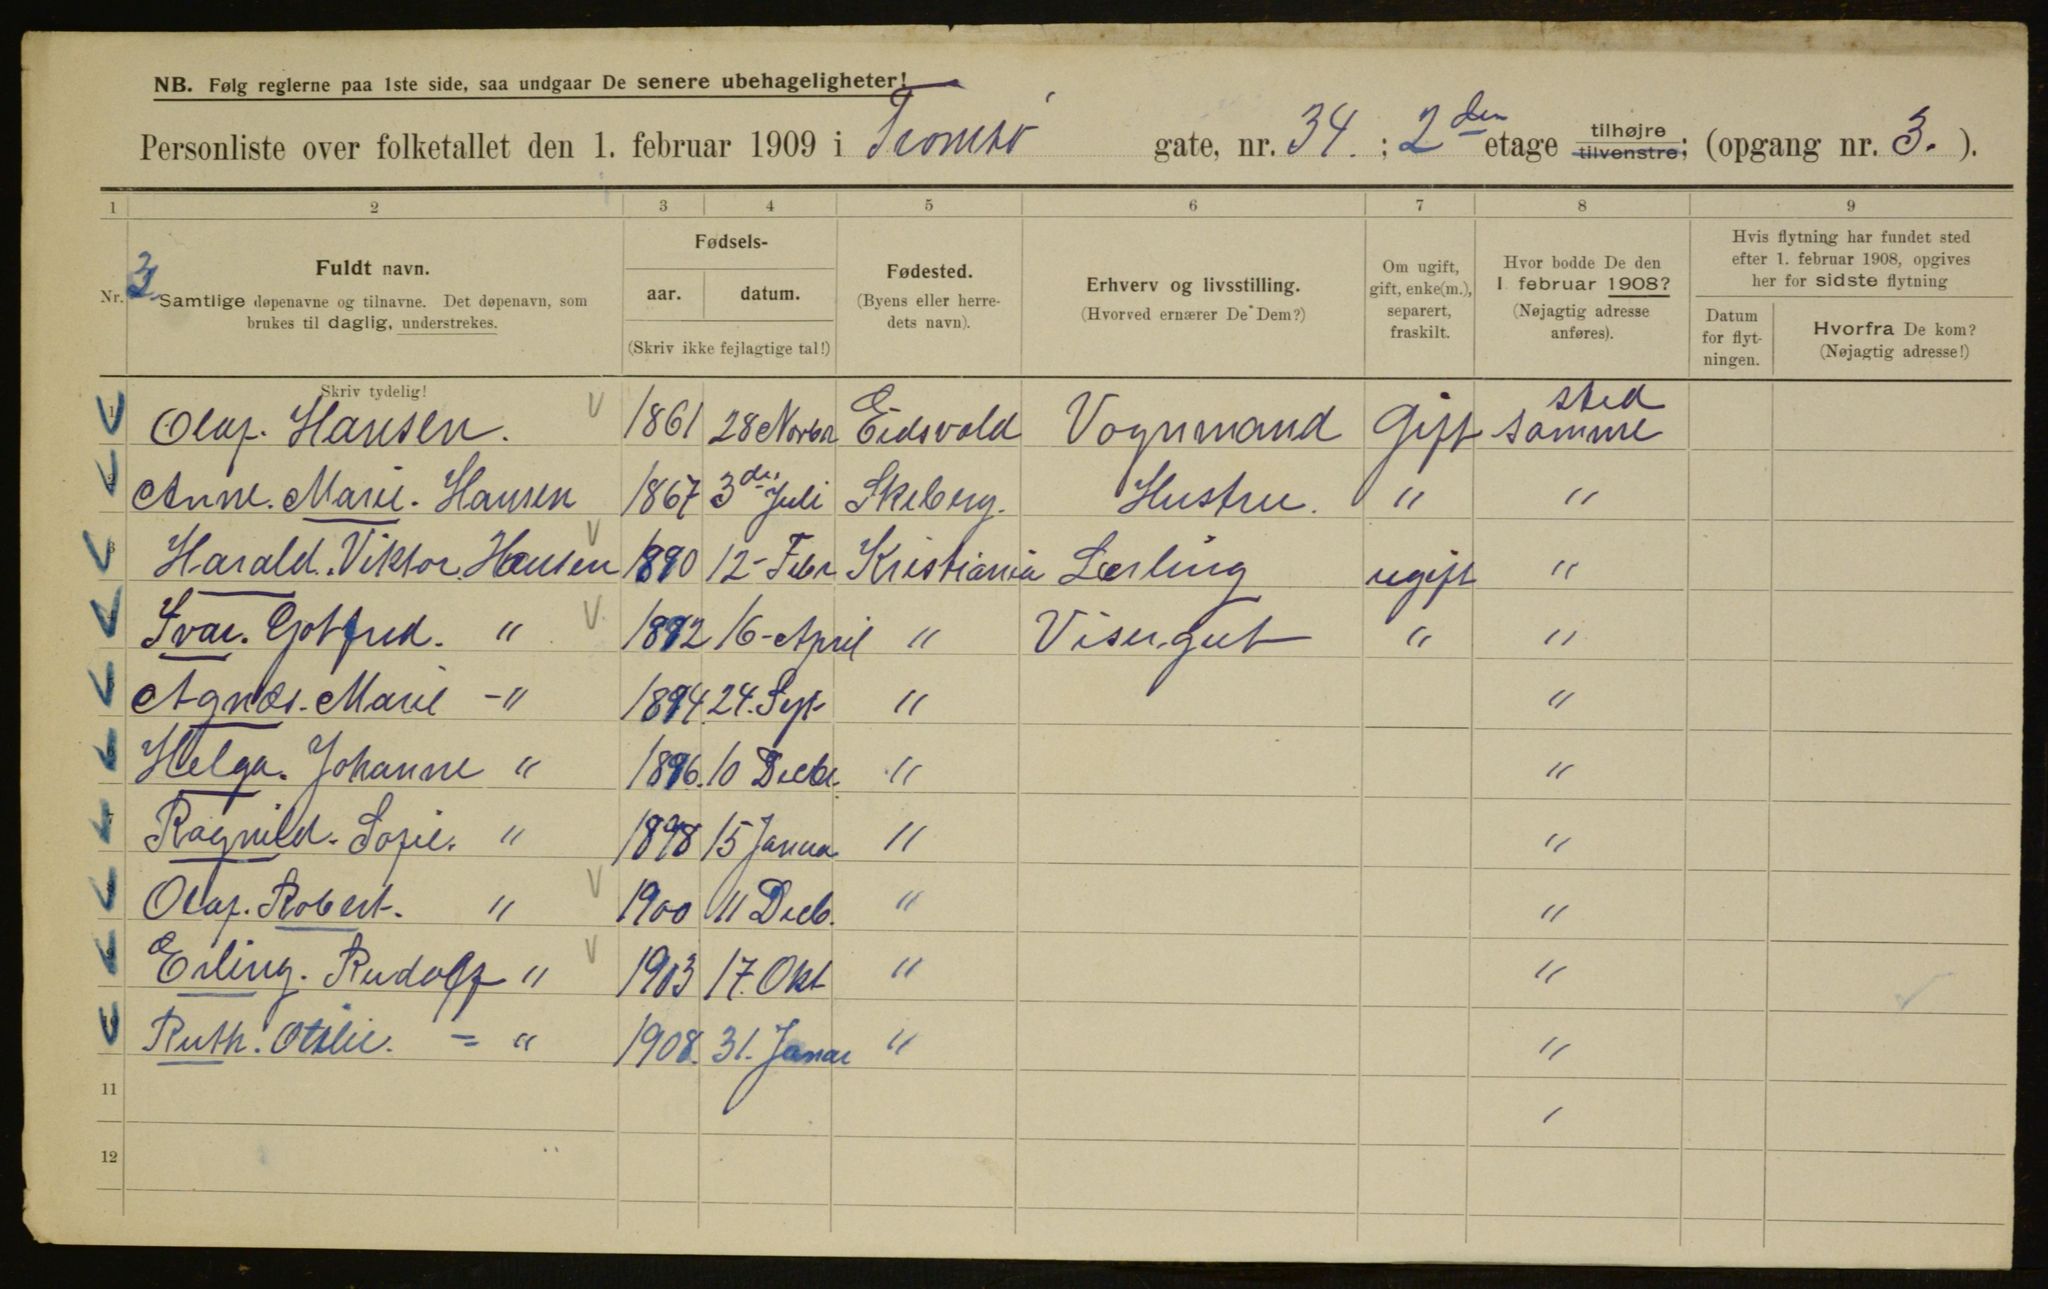 NB. Følg reglerne paa 1ste side, saa undgaar De senere ubehageligheter!
Personliste over folketallet den 1. februar 1909 i Tromsø gate, nr. 34. ; 2den etage tilhøjre tilvenstre; (opgang nr. 3. ).
1 2 3 4 5 6 7 8 9
Nr. 3
Fuldt navn.
Samtlige døpenavne og tilnavne. Det døpenavn, som
brukes til daglig, understrekes.
Skriv tydelig!
Fødsels-
aar. datum.
(Skriv ikke fejlagtige tal!)
Fødested.
(Byens eller herre-
dets navn).
Erhverv og livsstilling.
(Hvorved ernærer De Dem?)
Om ugift,
gift, enke(m.),
separert,
fraskilt.
Hvor bodde De den
1. februar 1908?
(Nøjagtig adresse
anføres).
Hvis flytning har fundet sted
efter 1. februar 1908, opgives
her for sidste flytning
Datum
for flyt-
ningen.
Hvorfra De kom?
(Nøjagtig adresse!)
1 Olaf. Hansen. 1861 28 Novbr Eidsvold Vognmand Gift samme sted
2 Anne. Marie. Hansen 1867 3die Juli Skeberg. Hustru. " "
3 Harald. Viktor. Hansen 1890 12- Febr Kristiania Lærling ugift "
4 Ivar. Gotfred. " 1892 16- April " Visergut " "
5 Agnes. Marie -" 1894. 24. Sept " "
6 Helga. Johanne " 1896. 10 Decbr. " "
7 Ragnild. Sofie. " 1898 15 Janua " "
8 Olaf. Robert. " 1900 11 Decb. " "
9 Erling. Rudolf " 1903 17. Okt " "
10 Ruth. Otilie. = " 1908. 31. Januar " "
11
12